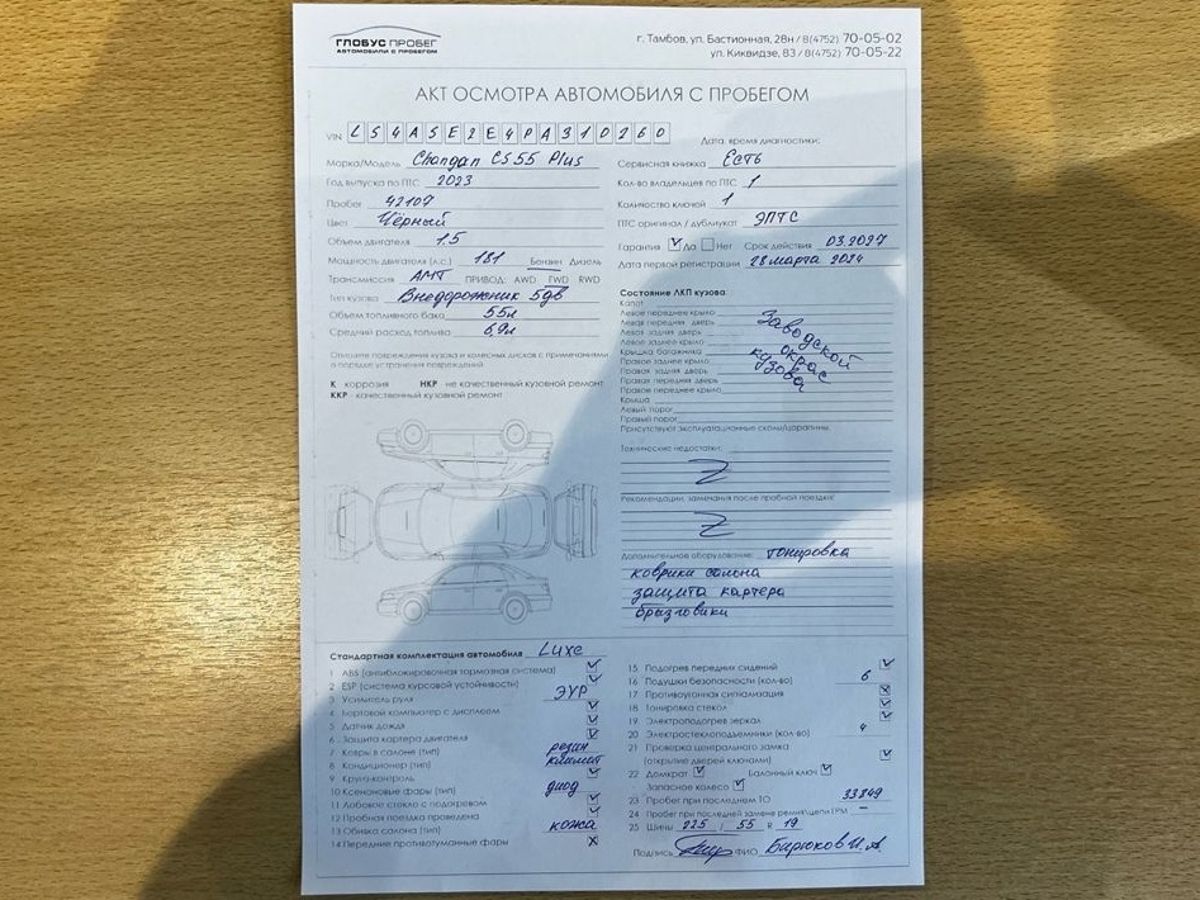 ГЛОБУС ПРОБЕГ
АВТОМОБИЛИ С ПРОБЕГОМ
г. Тамбов, ул. Бастионная, 28н / 8(4752) 70-05-02
ул. Киквидзе, 83 / 8(4752) 70-05-22
АКТ ОСМОТРА АВТОМОБИЛЯ С ПРОБЕГОМ
VIN LS4ASE2E4PA310260
Марка/Модель Changan CS55 Plus
Год выпуска по ПТС 2023
Пробег 42107
Цвет Чёрный
Объем двигателя 1.5
Мощность двигателя (л.с.) 181 Бензин Дизель
Трансмиссия АМТ ПРИВОД: AWD FWD RWD
Тип кузова Внедорожник 5дв
Объем топливного бака 55л
Средний расход топлива 6,9л
Опишите повреждения кузова и колесных дисков с примечаниями
о порядке устранения повреждений
К коррозия НКР не качественный кузовной ремонт
ККР - качественный кузовной ремонт
Дата, время диагностики:
Сервисная книжка Есть
Кол-во владельцев по ПТС 1
Количество ключей 1
ПТС оригинал / дубликат ЭПТС
Гарантия Да Нет Срок действия 03.2027
Дата первой регистрации 28 марта 2024
Состояние ЛКП кузова
Капот
Левое переднее крыло
Левая передняя дверь
Левая задняя дверь
Левое заднее крыло
Крышка багажника
Правое заднее крыло
Правая задняя дверь
Правая передняя дверь
Правое переднее крыло
Крыша
Левый порог
Правый порог
Заводской
окрас
кузова
Присутствуют эксплуатационные сколы/царапины.
Технические недостатки:
Z
Рекомендации, замечания после пробной поездки:
Z
Дополнительное оборудование: тонировка
коврики салона
защита картера
брызговики
Стандартная комплектация автомобиля Luxe
1 ABS (антиблокировочная тормозная система)
2 ESP (система курсовой устойчивости)
3 Усилитель руля ЭУР
4 Бортовой компьютер с дисплеем
5 Датчик дождя
6 Защита картера двигателя
7 Ковры в салоне (тип) резин
8 Кондиционер (тип) климат
9 Круиз-контроль
10 Ксеноновые фары (тип) диод
11 Лобовое стекло с подогревом
12 Пробная поездка проведена
13 Обивка салона (тип) кожа
14 Передние противотуманные фары
15 Подогрев передних сидений
16 Подушки безопасности (кол-во) 6
17 Противоугонная сигнализация
18 Тонировка стекол
19 Электроподогрев зеркал
20 Электростеклоподъемники (кол-во) 4
21 Проверка центрального замка
(открытие дверей ключами)
22 Домкрат Балонный ключ
Запасное колесо
23 Пробег при последнем ТО 33849
24 Пробег при последней замене ремня\цепи ГРМ –
25 Шины 225 / 55 R 19
Подпись ФИО Бирюков И.А